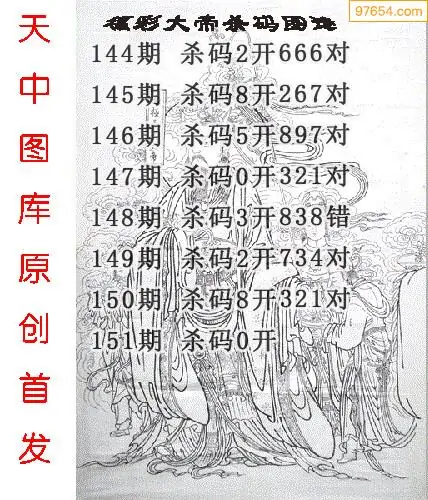 97654.com
福彩大帝杀码图谜
天中图库原创首发
144期 杀码2开666对
145期 杀码8开267对
146期 杀码5开897对
147期 杀码0开321对
148期 杀码3开838错
149期 杀码2开734对
150期 杀码8开321对
151期 杀码0开